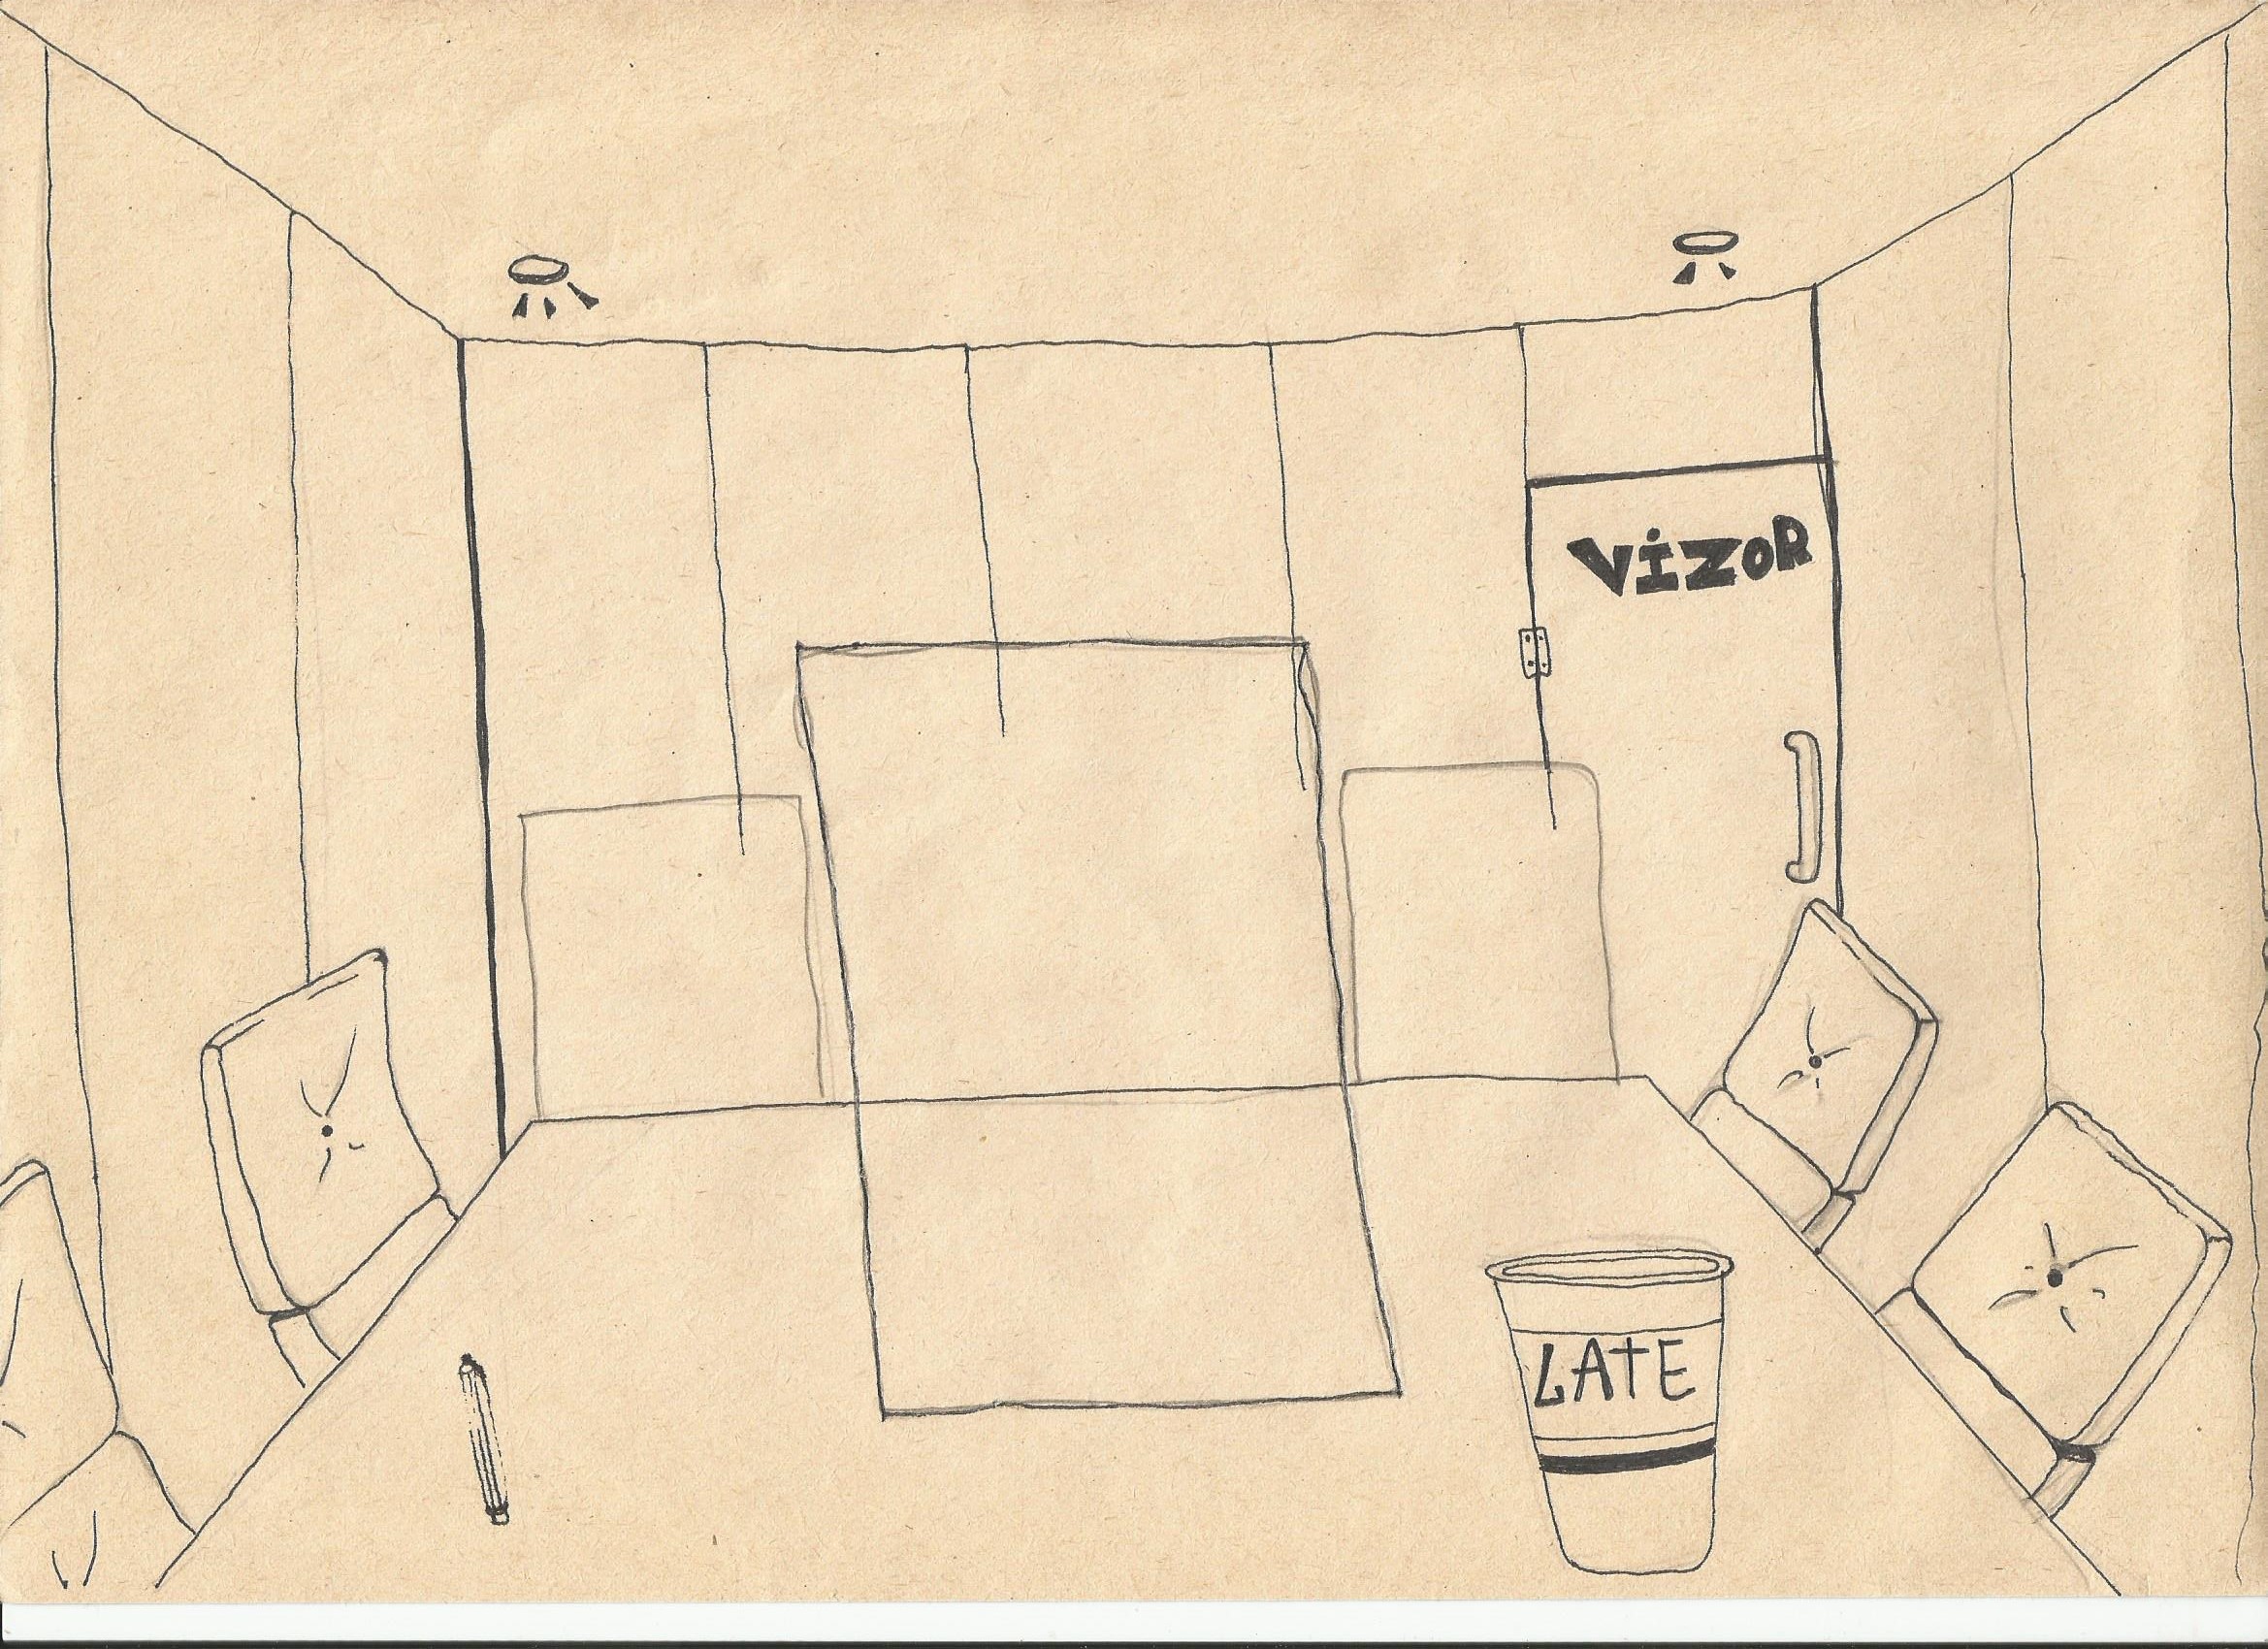 VIZOR
LATE